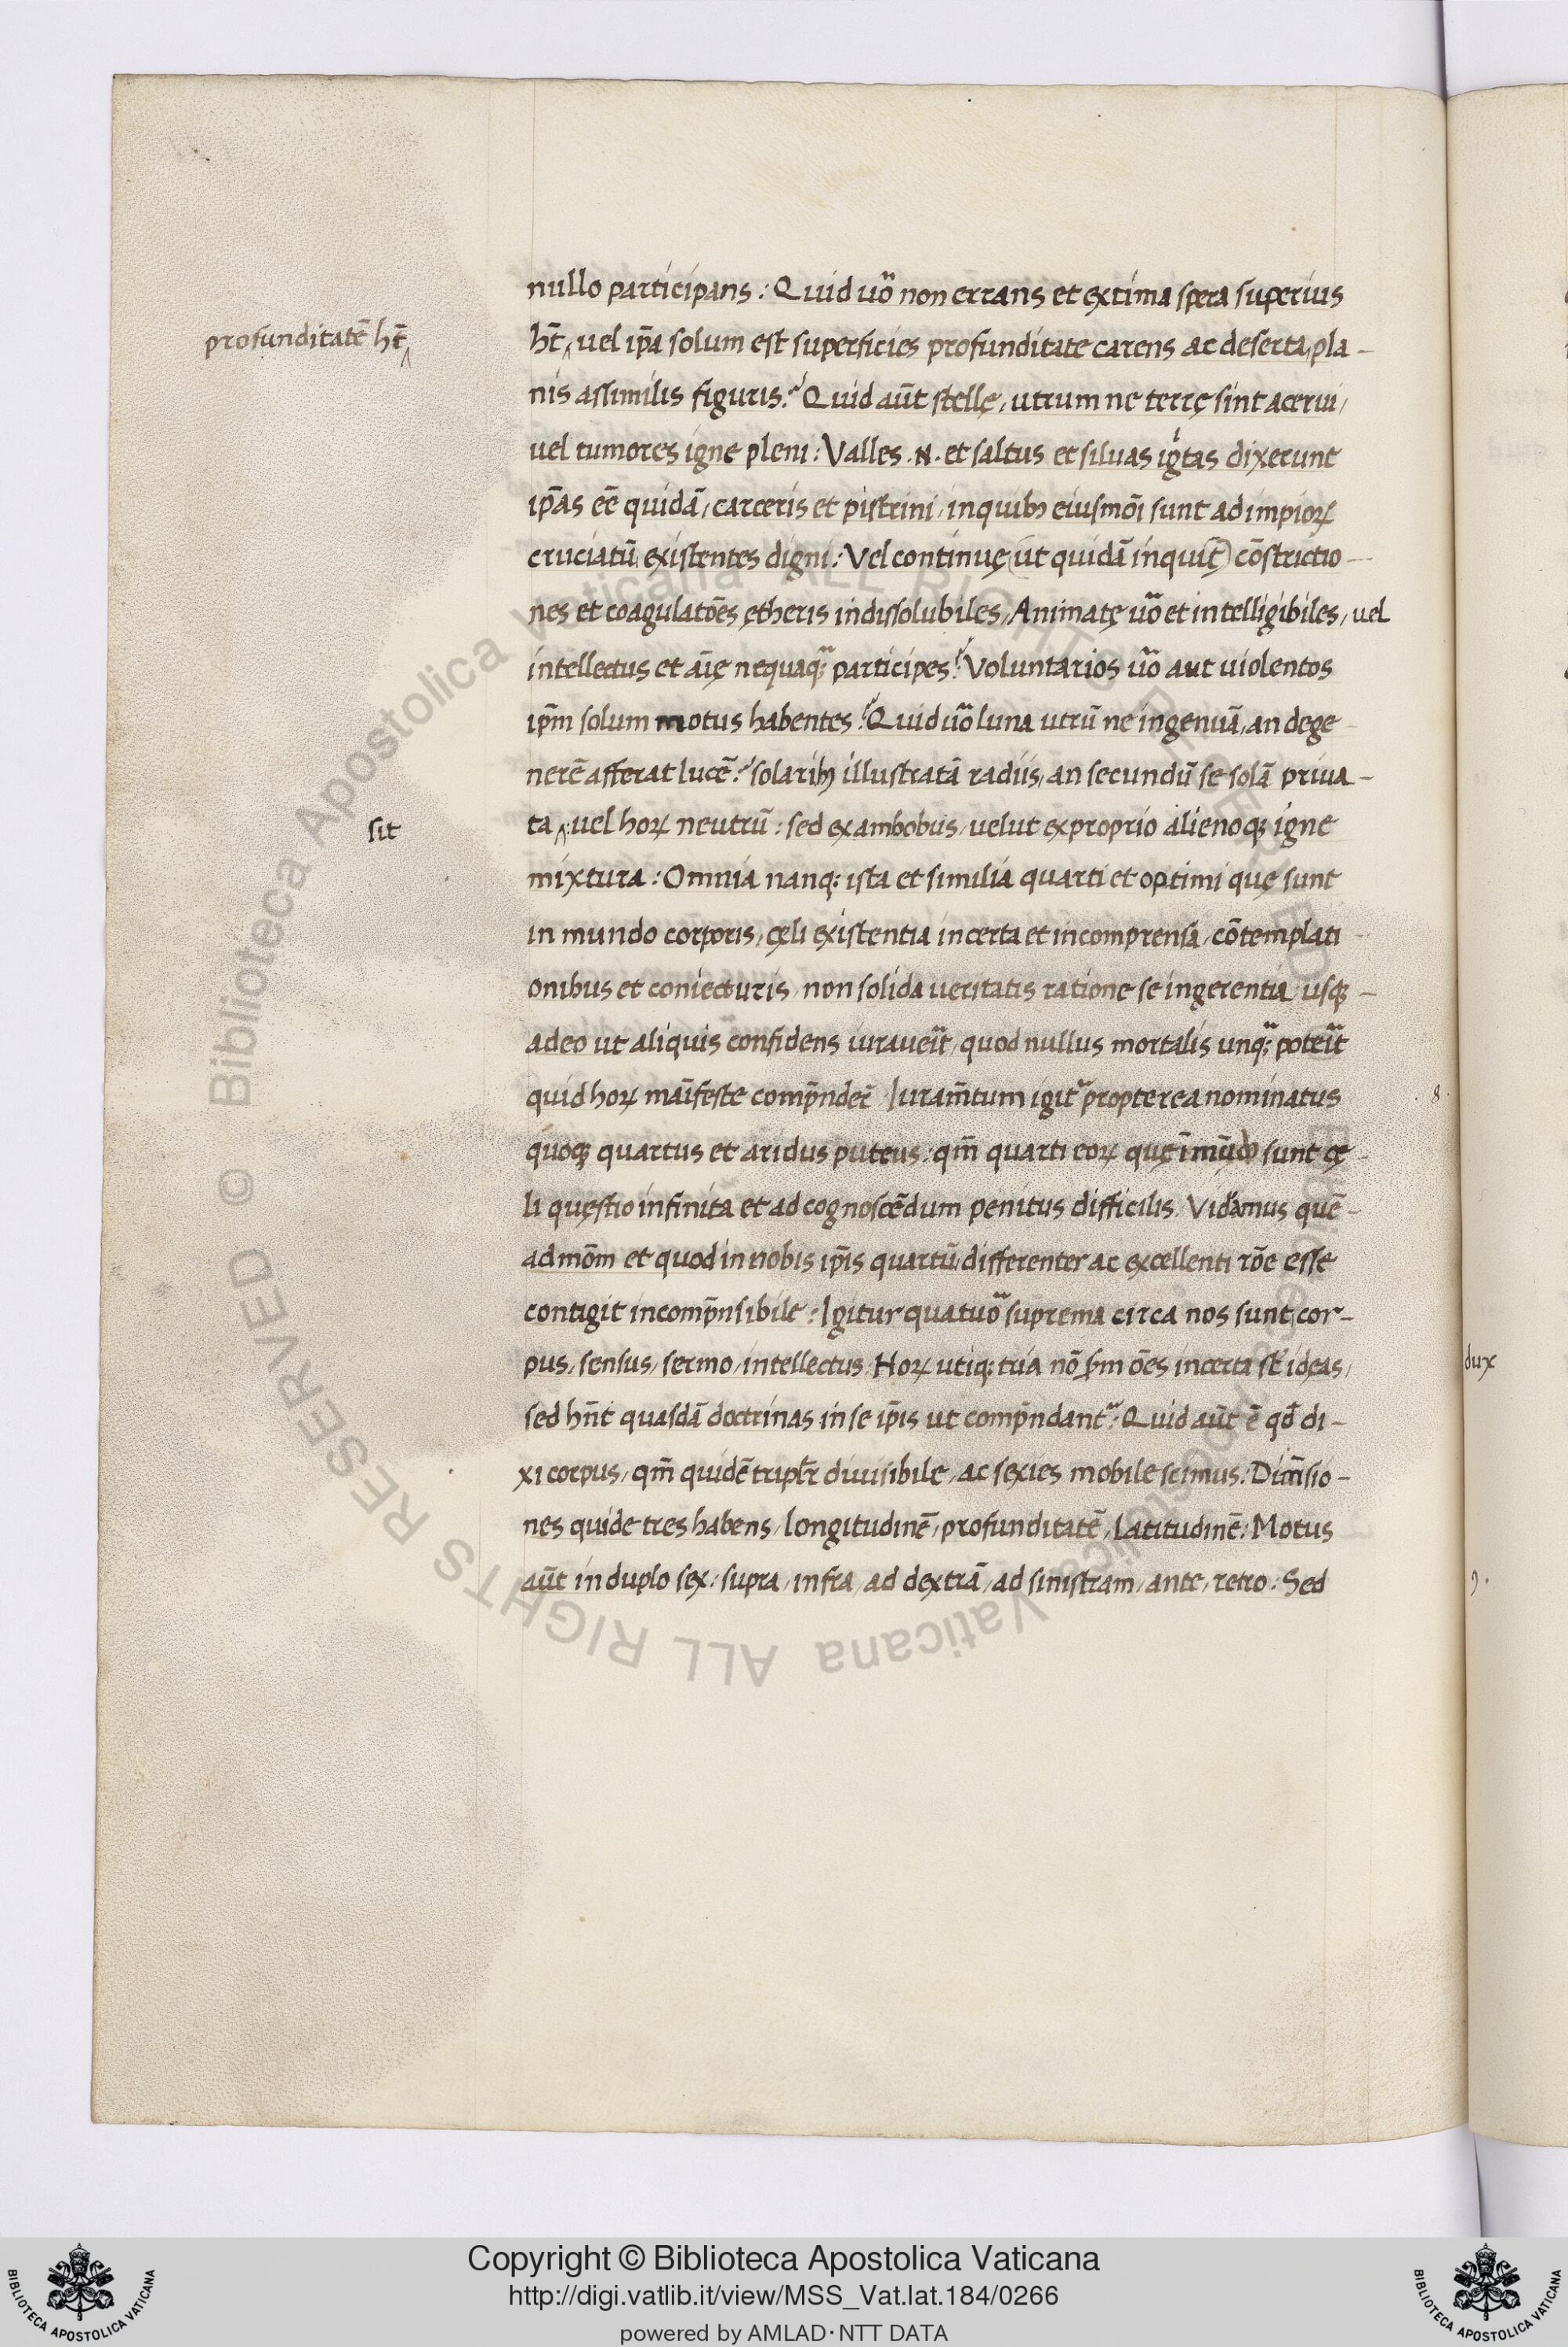 nullo participans : Quid uõ non errans et extima spera superius
profunditatē ht̄
ht̄ uel ip̄a solum est superficies profunditate carens ac deserta, pla-
nis assimilis figuris? Quid aūt stellę, utrum ne terrę sint acerui,
uel tumores igne pleni : Valles .N. et saltus et siluas ig̃tas dixerunt
ip̄as eē quidā, carceris et pistrini, in quibꝫ eiusmōi sunt ad impioꝝ
cruciatū existentes digni : Vel continuę (ut quidā inquit) cōstrictio-
nes et coagulatōes ętheris indissolubiles, Animatę uõ et intelligibiles, uel
intellectus et aīę nequaqꝫ participes? Voluntarios uõ aut uiolentos
ip̄m solum motus habentes? Quid uõ luna utrū ne ingenuā, an dege
nerē afferat lucē? solaribꝫ illustratā radiis, an secundū se solā priua-
sit
ta uel hoꝝ neutrū : sed ex ambobus, uelut ex proprio alienoqꝫ igne
mixtura : Omnia nanqꝫ ista et similia quarti et optimi quę sunt
in mundo corporis, cęli existentia incerta et incomprensa, cōtemplati
onibus et coniecturis, non solida ueritatis ratione se ingerentia, usqꝫ-
adeo ut aliquis confidens iuraueīt, quod nullus mortalis unqꝫ poteīt
quid hoꝝ maīfeste comp̄nder̄ Iuram̄tum igit᷑ propterea nominatus
8.
quoqꝫ quartus et aridus puteus : qm̄ quarti eoꝝ quę ī mūdo sunt cę
li quęstio infinita et ad cognoscēdum penitus difficilis. Videamus quē-
admōm et quod in nobis ip̄is quartū, differenter ac excellenti rōe esse
contigit incomp̄nsibile : Igitur quatuõ suprema circa nos sunt, cor-
pus, sensus, sermo, intellectus. Hoꝝ utiqꝫ tria nō ẜm ōes incerta st̄ ideas,
dux
sed hn̄t quasdā doctrinas in se ip̄is ut comp̄ndant᷑. Quid aūt ē qđ di-
xi corpus, qm̄ quidē triplr̄ diuisibile, ac sexies mobile scimus : Dim̄sio-
nes quide tres habens, longitudinē, profunditatē, latitudinē : Motus
aūt in duplo sex : supra, infra, ad dextrā, ad sinistram, ante, retro : Sed
9.
© Biblioteca Apostolica Vaticana ALL RIGHTS RESERVED
Copyright © Biblioteca Apostolica Vaticana
http://digi.vatlib.it/view/MSS_Vat.lat.184/0266
powered by AMLAD·NTT DATA
BIBLIOTECA APOSTOLICA VATICANA
BIBLIOTECA APOSTOLICA VATICANA